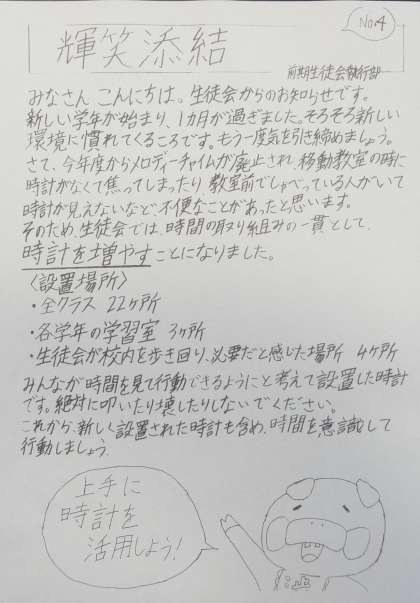 No.4
輝笑添結
前期生徒会執行部
みなさん こんにちは。生徒会からのお知らせです。
新しい学年が始まり、1ヵ月が過ぎました。そろそろ新しい
環境に慣れてくるころです。もう一度気を引き締めましょう。
さて、今年度からメロディーチャイムが廃止され、移動教室の時に
時計がなくて焦ってしまったり 教室前でしゃべっている人がいて
時計が見えないなど、不便なことがあったと思います。
そのため、生徒会では、時間の取り組みの一貫として、
時計を増やすことになりました。
〈設置場所〉
・全クラス 22ヶ所
・各学年の学習室 3ヶ所
・生徒会が校内を歩き回り、必要だと感じた場所 4ヶ所
みんなが時間を見て行動できるようにと考えて設置した時計
です。絶対に叩いたり壊したりしないでください。
これから、新しく設置された時計も含め、時間を意識して
行動しましょう。
上手に
時計を
活用しよう!